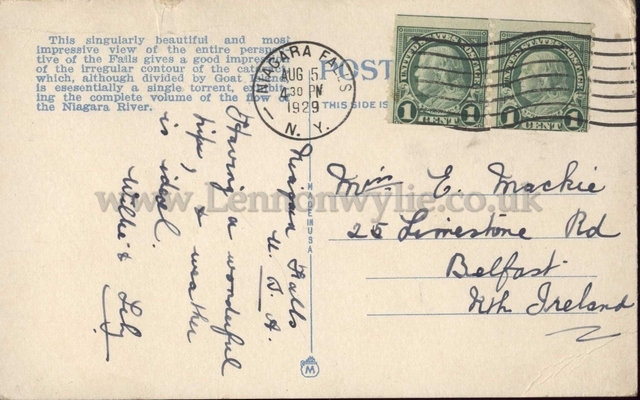 This singularly beautiful and most
impressive view of the entire perspec-
tive of the Falls gives a good impres
of the irregular contour of the cat
which, although divided by Goat
is esesentially a single torrent, ex
ing the complete volume of the flow of
the Niagara River.
NIAGARA FALLS
AUG 5
4 30 PM
1929
N. Y.
POST
THIS SIDE IS
UNITED STATES POSTAGE
1 CENT 1
UNITED STATES POSTAGE
1 CENT 1
Niagara Falls
U. S. A.
Having a wonderful
trip, & weather
is ideal.
Willie & Lily
MADE IN USA
M
Miss E. Mackie
25 Limestone Rd
Belfast
Nth Ireland
www.Lennonwylie.co.uk